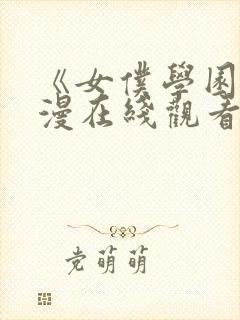 《女僕學園
漫在綫觀看
党萌萌